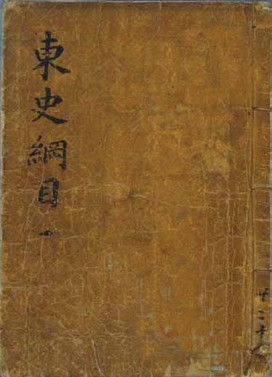 東史綱目 一
共二十